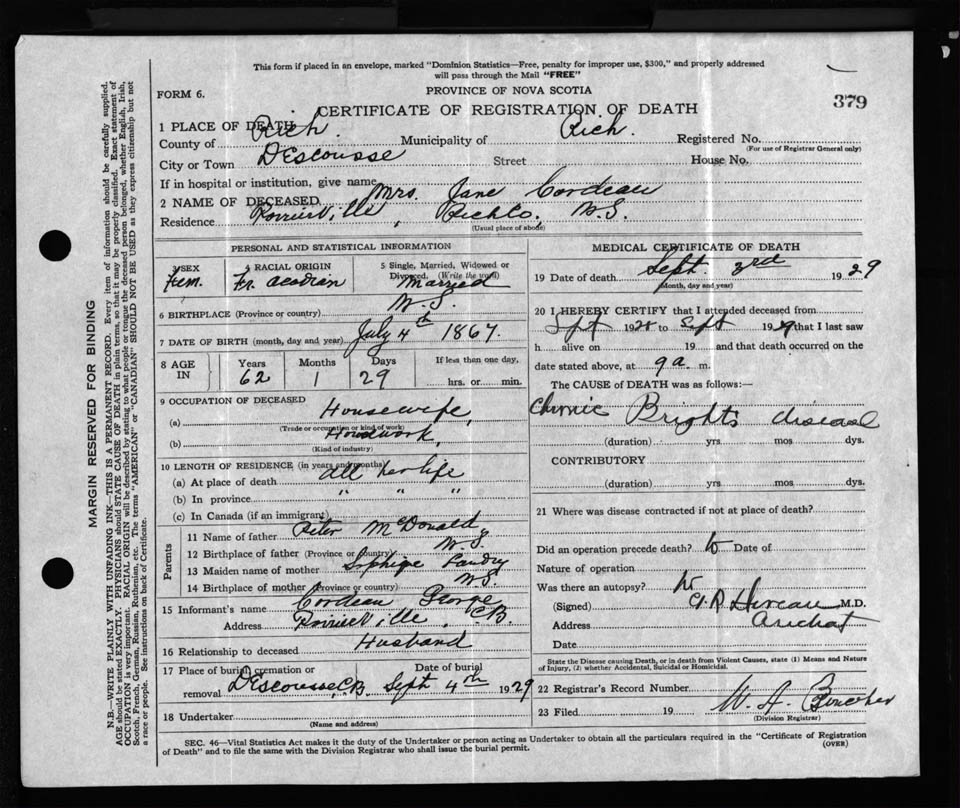 This form if placed in an envelope, marked "Dominion Statistics—Free, penalty for improper use, $300," and properly addressed
will pass through the Mail "FREE"
FORM 6.
PROVINCE OF NOVA SCOTIA
379
CERTIFICATE OF REGISTRATION OF DEATH
1 PLACE OF DEATH
County of Rich. Municipality of Rich. Registered No.
(For use of Registrar General only)
City or Town DEscousse Street House No.
If in hospital or institution, give name
2 NAME OF DECEASED Mrs. Jane Cordeau
Residence Poirrierville, Rich Co. N.S.
(Usual place of abode)
PERSONAL AND STATISTICAL INFORMATION
3 SEX 4 RACIAL ORIGIN 5 Single, Married, Widowed or Divorced. (Write the word)
Fem. Fr. Acadian Married
6 BIRTHPLACE (Province or country) N.S.
7 DATE OF BIRTH (month, day and year) July 4th 1867.
8 AGE IN Years Months Days If less than one day,
62 1 29 hrs. or min.
9 OCCUPATION OF DECEASED
(a) Housewife,
(Trade or occupation or kind of work)
(b) Housework,
(Kind of industry)
10 LENGTH OF RESIDENCE (in years and months)
(a) At place of death all her life
(b) In province " " "
(c) In Canada (if an immigrant)
Parents
11 Name of father Peter McDonald
12 Birthplace of father (Province or country) N.S.
13 Maiden name of mother Landry
14 Birthplace of mother (Province or country) N.S.
15 Informant's name Cordeau George
Address Poirrierville, CB.
16 Relationship to deceased Husband
17 Place of burial, cremation or removal DEscousse, C.B. Date of burial Sept 4th 1929
18 Undertaker
(Name and address)
MEDICAL CERTIFICATE OF DEATH
19 Date of death Sept. 3rd 1929
(Month, day and year)
20 I HEREBY CERTIFY that I attended deceased from
Sept 1928 to Sept 1929 that I last saw
h alive on 19 and that death occurred on the
date stated above, at 9 a. m.
The CAUSE OF DEATH was as follows:—
Chronic Brights disease
(duration) yrs mos dys.
CONTRIBUTORY
(duration) yrs. mos dys.
21 Where was disease contracted if not at place of death?
Did an operation precede death? Date of
Nature of operation
Was there an autopsy? No
(Signed) M.D.
Address Arichat
Date
State the Disease causing Death, or in death from Violent Causes, state (1) Means and Nature
of Injury, (2) whether Accidental, Suicidal or Homicidal.
22 Registrar's Record Number
23 Filed 19 W. A.
(Division Registrar)
SEC. 46—Vital Statistics Act makes it the duty of the Undertaker or person acting as Undertaker to obtain all the particulars required in the "Certificate of Registration
of Death" and to file the same with the Division Registrar who shall issue the burial permit.
(OVER)
MARGIN RESERVED FOR BINDING
N.B.—WRITE PLAINLY WITH UNFADING INK—THIS IS A PERMANENT RECORD. Every item of information should be carefully supplied.
AGE should be stated EXACTLY. PHYSICIANS should STATE CAUSE OF DEATH in plain terms, so that it may be properly classified. Exact statement of
OCCUPATION is very important. RACIAL ORIGIN will be described by stating to what people or tongue the deceased person belonged, whether English, Irish,
Scotch, French, German, Russian, Ruthenian, etc. The terms "AMERICAN" or "CANADIAN" SHOULD NOT BE USED as they express citizenship but not
a race or people. See instructions on back of Certificate.